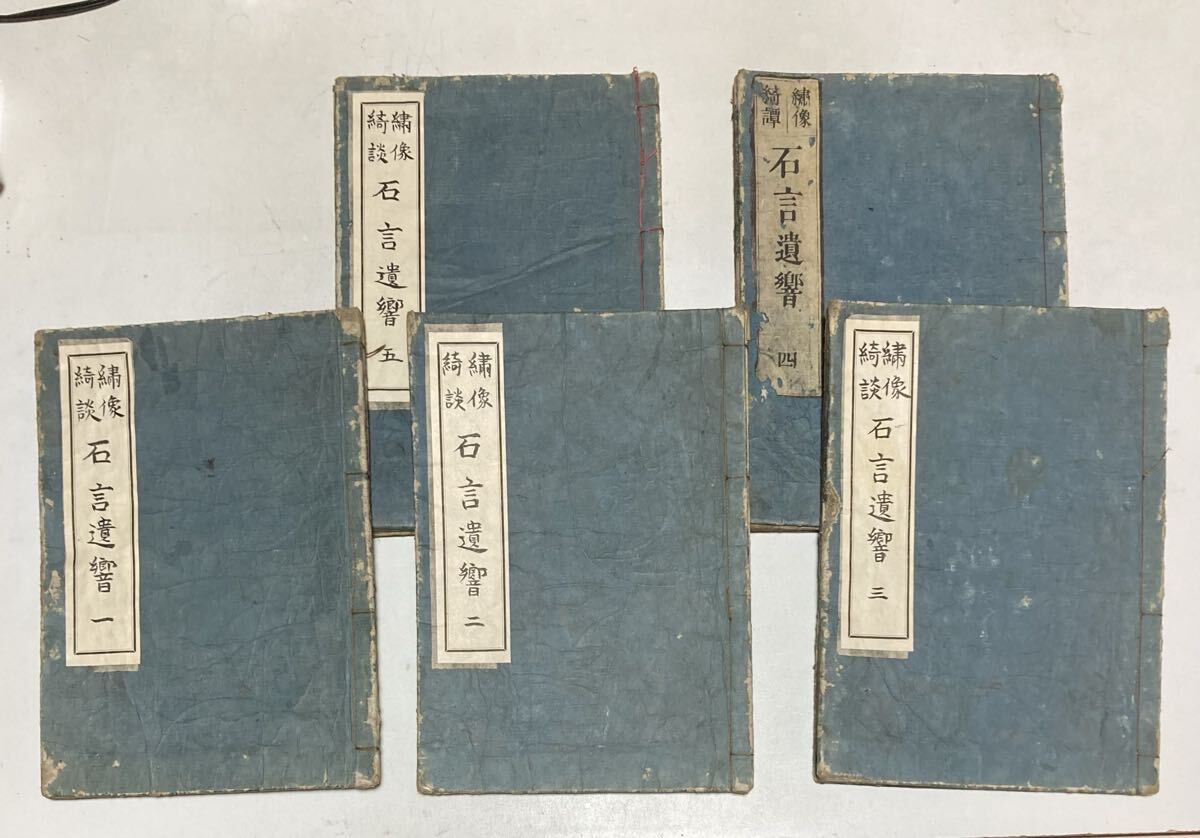 繡像
綺談
石言遺響 五
繡像
綺譚
石言遺響 四
繡像
綺談
石言遺響 一
繡像
綺談
石言遺響 二
繡像
綺談
石言遺響 三